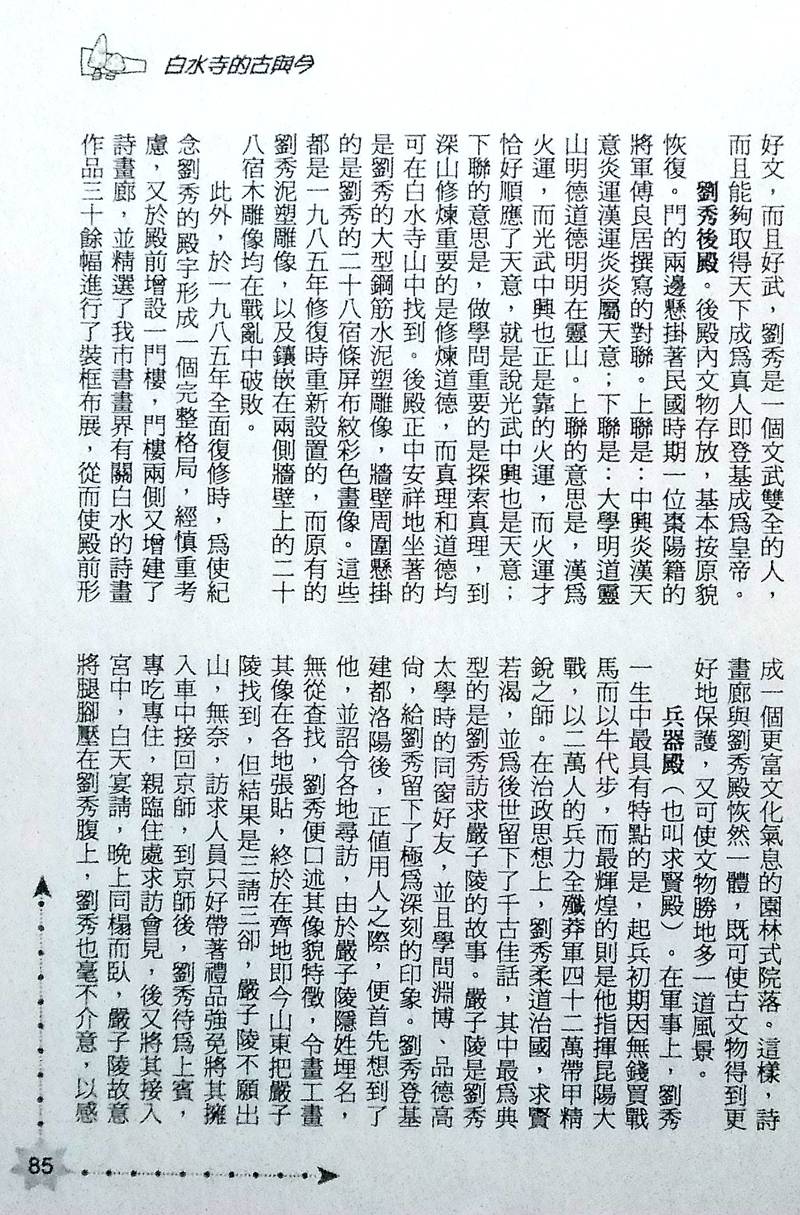 白水寺的古與今
好文，而且好武，劉秀是一個文武雙全的人，
而且能夠取得天下成爲真人即登基成爲皇帝。
劉秀後殿。後殿內文物存放，基本按原貌
恢復。門的兩邊懸掛著民國時期一位棗陽籍的
將軍傅良居撰寫的對聯。上聯是：中興炎漢天
意炎運漢運炎炎屬天意；下聯是：大學明道靈
山明德道德明明在靈山。上聯的意思是，漢爲
火運，而光武中興也正是靠的火運，而火運才
恰好順應了天意，就是說光武中興也是天意；
下聯的意思是，做學問重要的是探索真理，到
深山修煉重要的是修煉道德，而真理和道德均
可在白水寺山中找到。後殿正中安祥地坐著的
是劉秀的大型鋼筋水泥塑雕像，牆壁周圍懸掛
的是劉秀的二十八宿條屏布紋彩色畫像。這些
都是一九八五年修復時重新設置的，而原有的
劉秀泥塑雕像，以及鑲嵌在兩側牆壁上的二十
八宿木雕像均在戰亂中破敗。
此外，於一九八五年全面復修時，爲使紀
念劉秀的殿宇形成一個完整格局，經慎重考
慮，又於殿前增設一門樓，門樓兩側又增建了
詩畫廊，並精選了我市書畫界有關白水的詩畫
作品三十餘幅進行了裝框布展，從而使殿前形
成一個更富文化氣息的園林式院落。這樣，詩
畫廊與劉秀殿恢然一體，既可使古文物得到更
好地保護，又可使文物勝地多一道風景。
兵器殿（也叫求賢殿）。在軍事上，劉秀
一生中最具有特點的是，起兵初期因無錢買戰
馬而以牛代步，而最輝煌的則是他指揮昆陽大
戰，以二萬人的兵力全殲莽軍四十二萬帶甲精
銳之師。在治政思想上，劉秀柔道治國，求賢
若渴，並爲後世留下了千古佳話，其中最爲典
型的是劉秀訪求嚴子陵的故事。嚴子陵是劉秀
太學時的同窗好友，並且學問淵博、品德高
尙，給劉秀留下了極爲深刻的印象。劉秀登基
建都洛陽後，正值用人之際，便首先想到了
他，並詔令各地尋訪，由於嚴子陵隱姓埋名，
無從查找，劉秀便口述其像貌特徵，令畫工畫
其像在各地張貼，終於在齊地即今山東把嚴子
陵找到，但結果是三請三卻，嚴子陵不願出
山，無奈，訪求人員只好帶著禮品強免將其擁
入車中接回京師，到京師後，劉秀待爲上賓，
專吃專住，親臨住處求訪會見，後又將其接入
宮中，白天宴請，晚上同榻而臥，嚴子陵故意
將腿腳壓在劉秀腹上，劉秀也毫不介意，以感
85